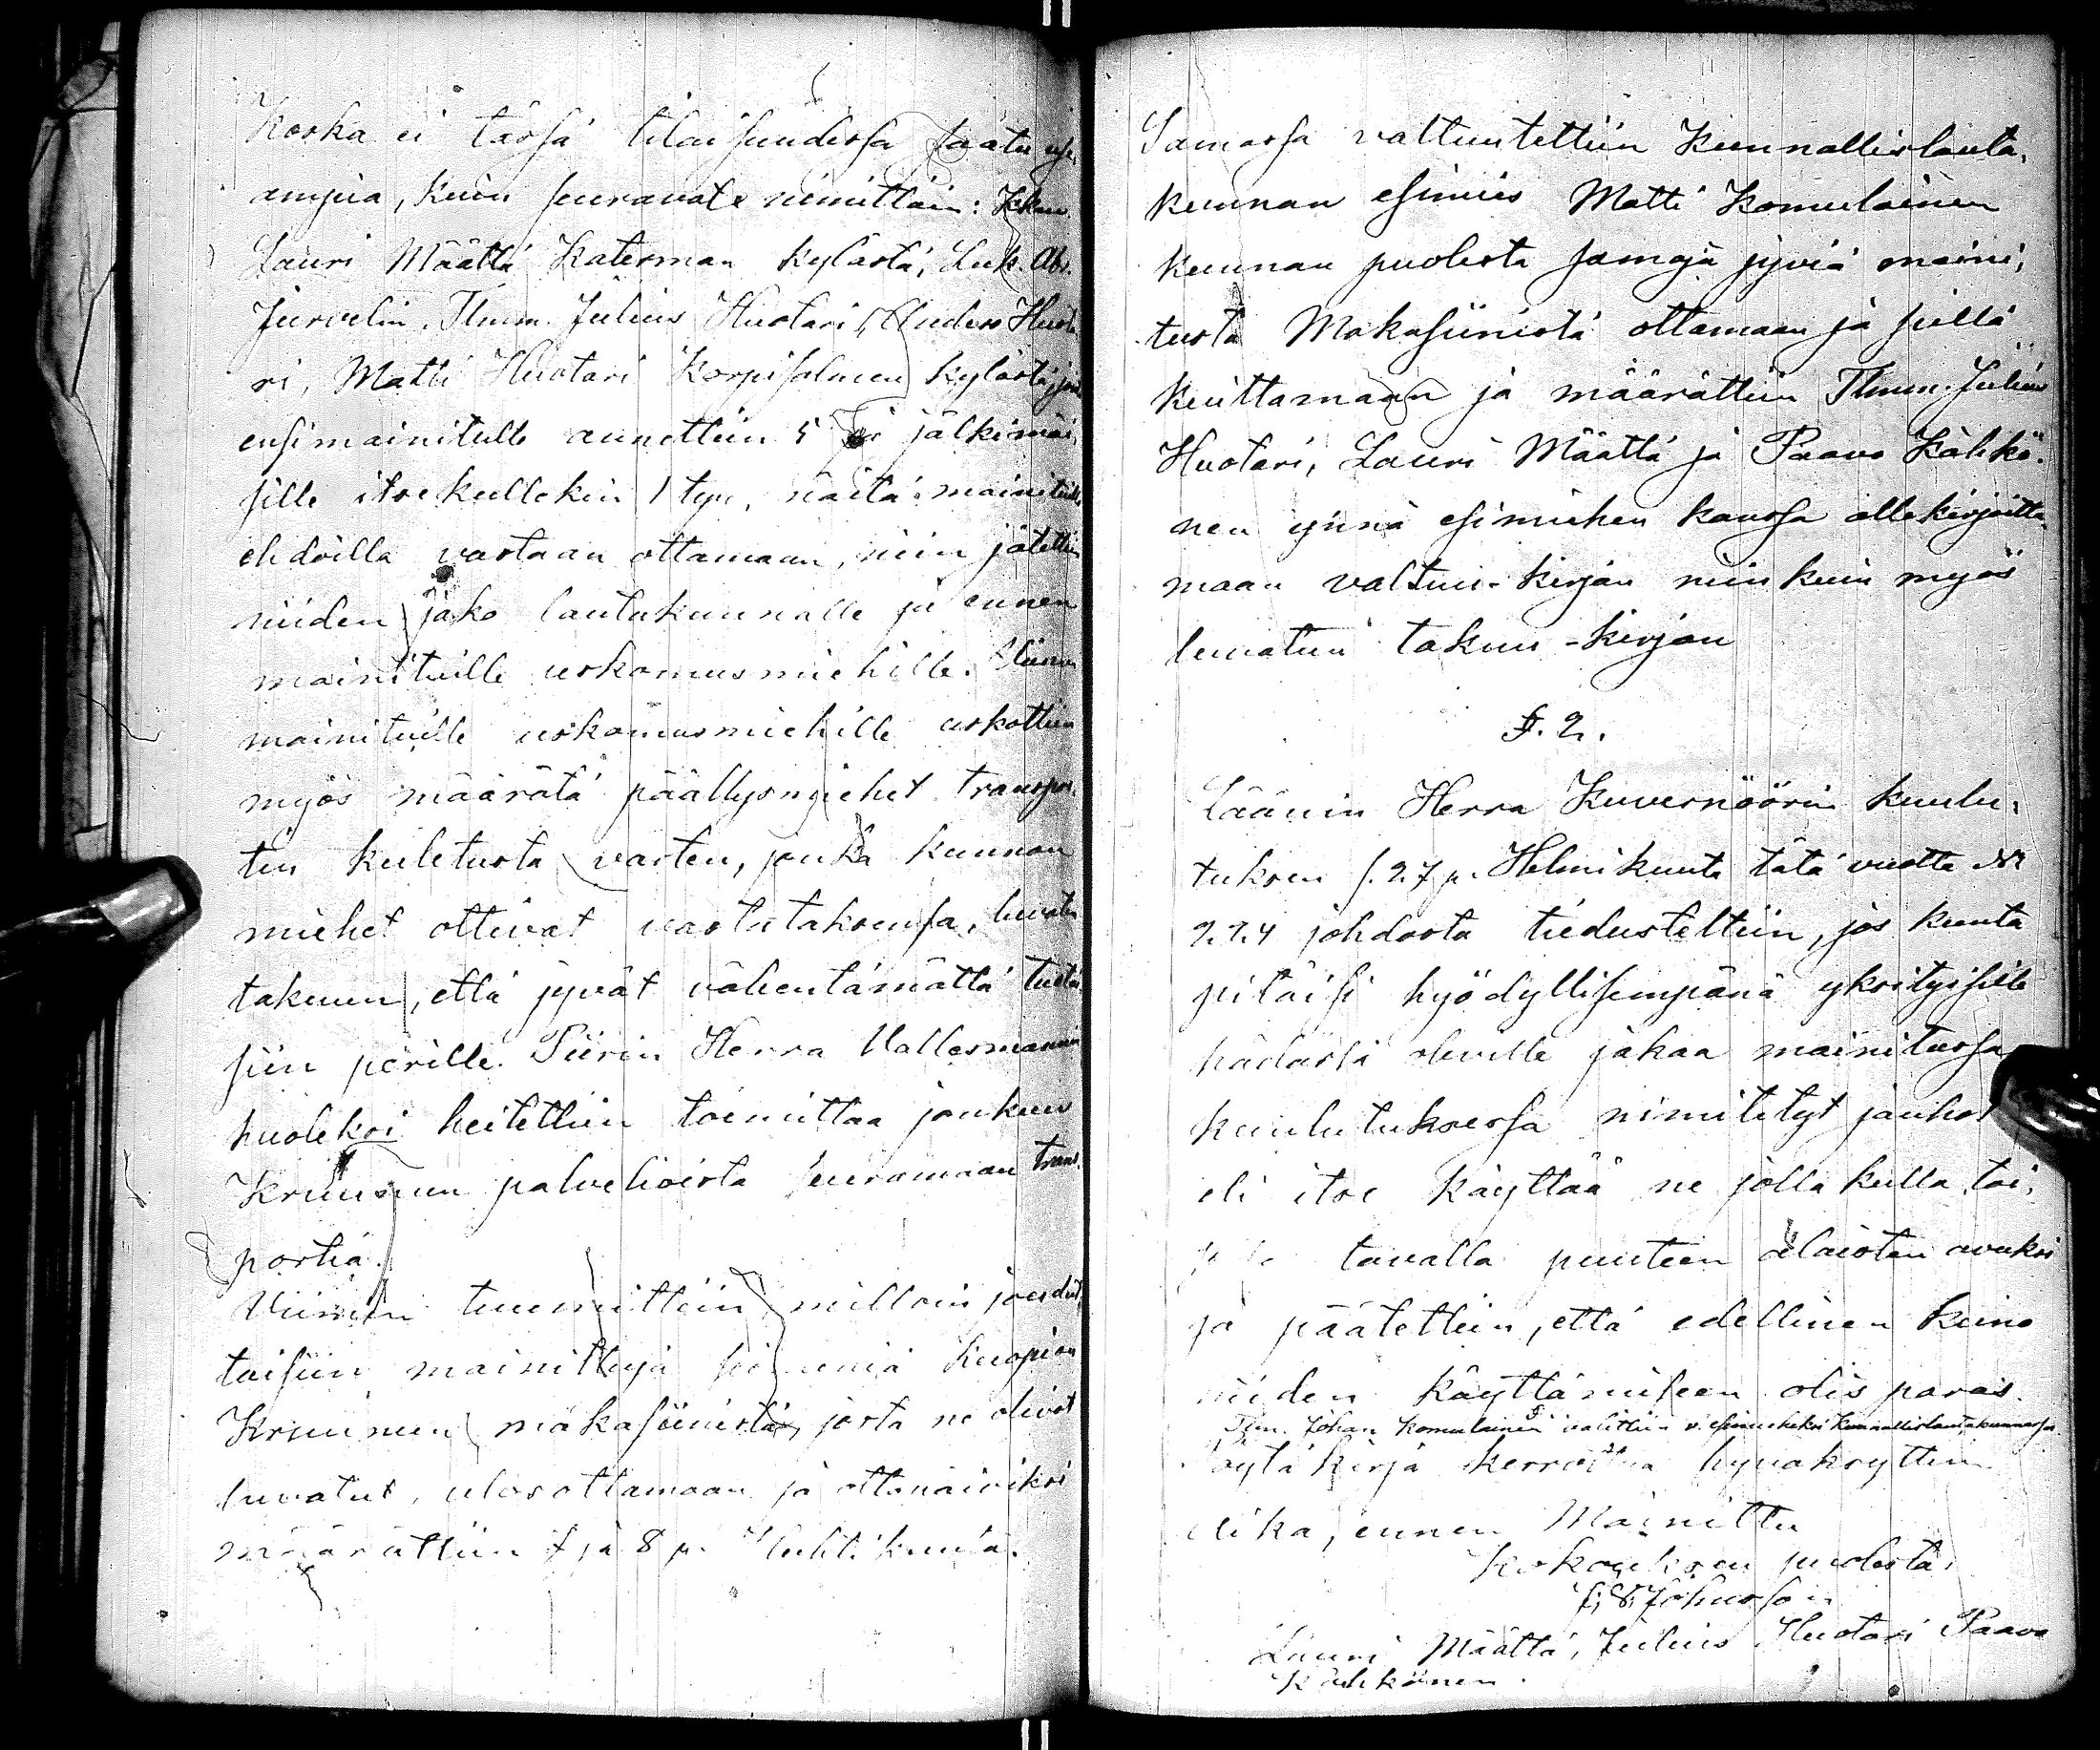 Koska ei tässä tilaisuudessa saatu use,
ampia, kuin seuravat nimittäin:
Lauri Määttä Katerman kylästä, Luk. Ab.
Jurvelin, Tlmm. Julius Huotari, Anders Huota
ri, Matti Huotari Korpisalmen kylästä, joi
ensimainitulle annettiin 5 ja jälkimäi,
sille itsekullekin 1 tyn, näitä mainituill
ehdoilla vastaan ottamaan, niin jätettiin
niiden jako lautakunnalle ja ennen
mainituille uskomusmiehille. Viime
mainituille uskomusmiehille uskottiin
myös määrätä päällysmiehet transpor,
tin kuletusta varten, jonka kunnan
miehet ottivat vastataksensa, luvatun
takuun, että jyvät vähentämättä tuotai
siin perille. Piirin Herra Vallesmannin
huoleksi heitettiin toimittaa jonkun
Kruunun palvelioista seuraamaan trans,
portia.
Viimein tuumittiin milloin jouduttaisiin mainittuja
taisiin mainittuja siemeniä Kuopion
Kruunun makasiinista, josta ne olivat
luvatut, ulosottamaan ja ottopäiviksi
määrättiin 7 ja 8 p. Huhtikuuta.
Samassa valtuutettiin Kunnallislauta,
kunnan esimies Matti Komulainen
kunnan puolesta samoja jyviä maini,
tusta Makasiinistä ottamaan ja siellä
kuittamaan ja määrättiin Tlmm. Julius
Huotari, Lauri Määttä ja Paavo Kähkö,
nen ynnä esimiehen kanssa allekirjoitta,
maan valtuus-kirjan niin kuin myös
luvatun takuu-kirjan
§. 2.
Läänin Herra Kuvernöörin kuulu,
tuksen s. 27 p. Helmikuuta tätä vuotta No
224 johdosta tiedusteltiin, jos kunta
pitäisi hyödyllisempänä yksityisille
hädässä oleville jakaa mainitussa
kuulutuksessa nimitetyt jauhot
eli itse käyttää ne jolla kulla toi,
tavalla puuteen alaisten avuksi
ja päätettiin, että edellinen keino
niiden käyttämiseen olis paras.
Tlm. Johan Komulainen valittiin v. esimieheksi Kunnallislautakunnassa
Pöytäkirja kerrottua hyväksyttiin
Aika, ennen Mainittu
Kokouksen puolesta,
Lauri Määttä, Julius Huotari Paavo
Kähkönen.